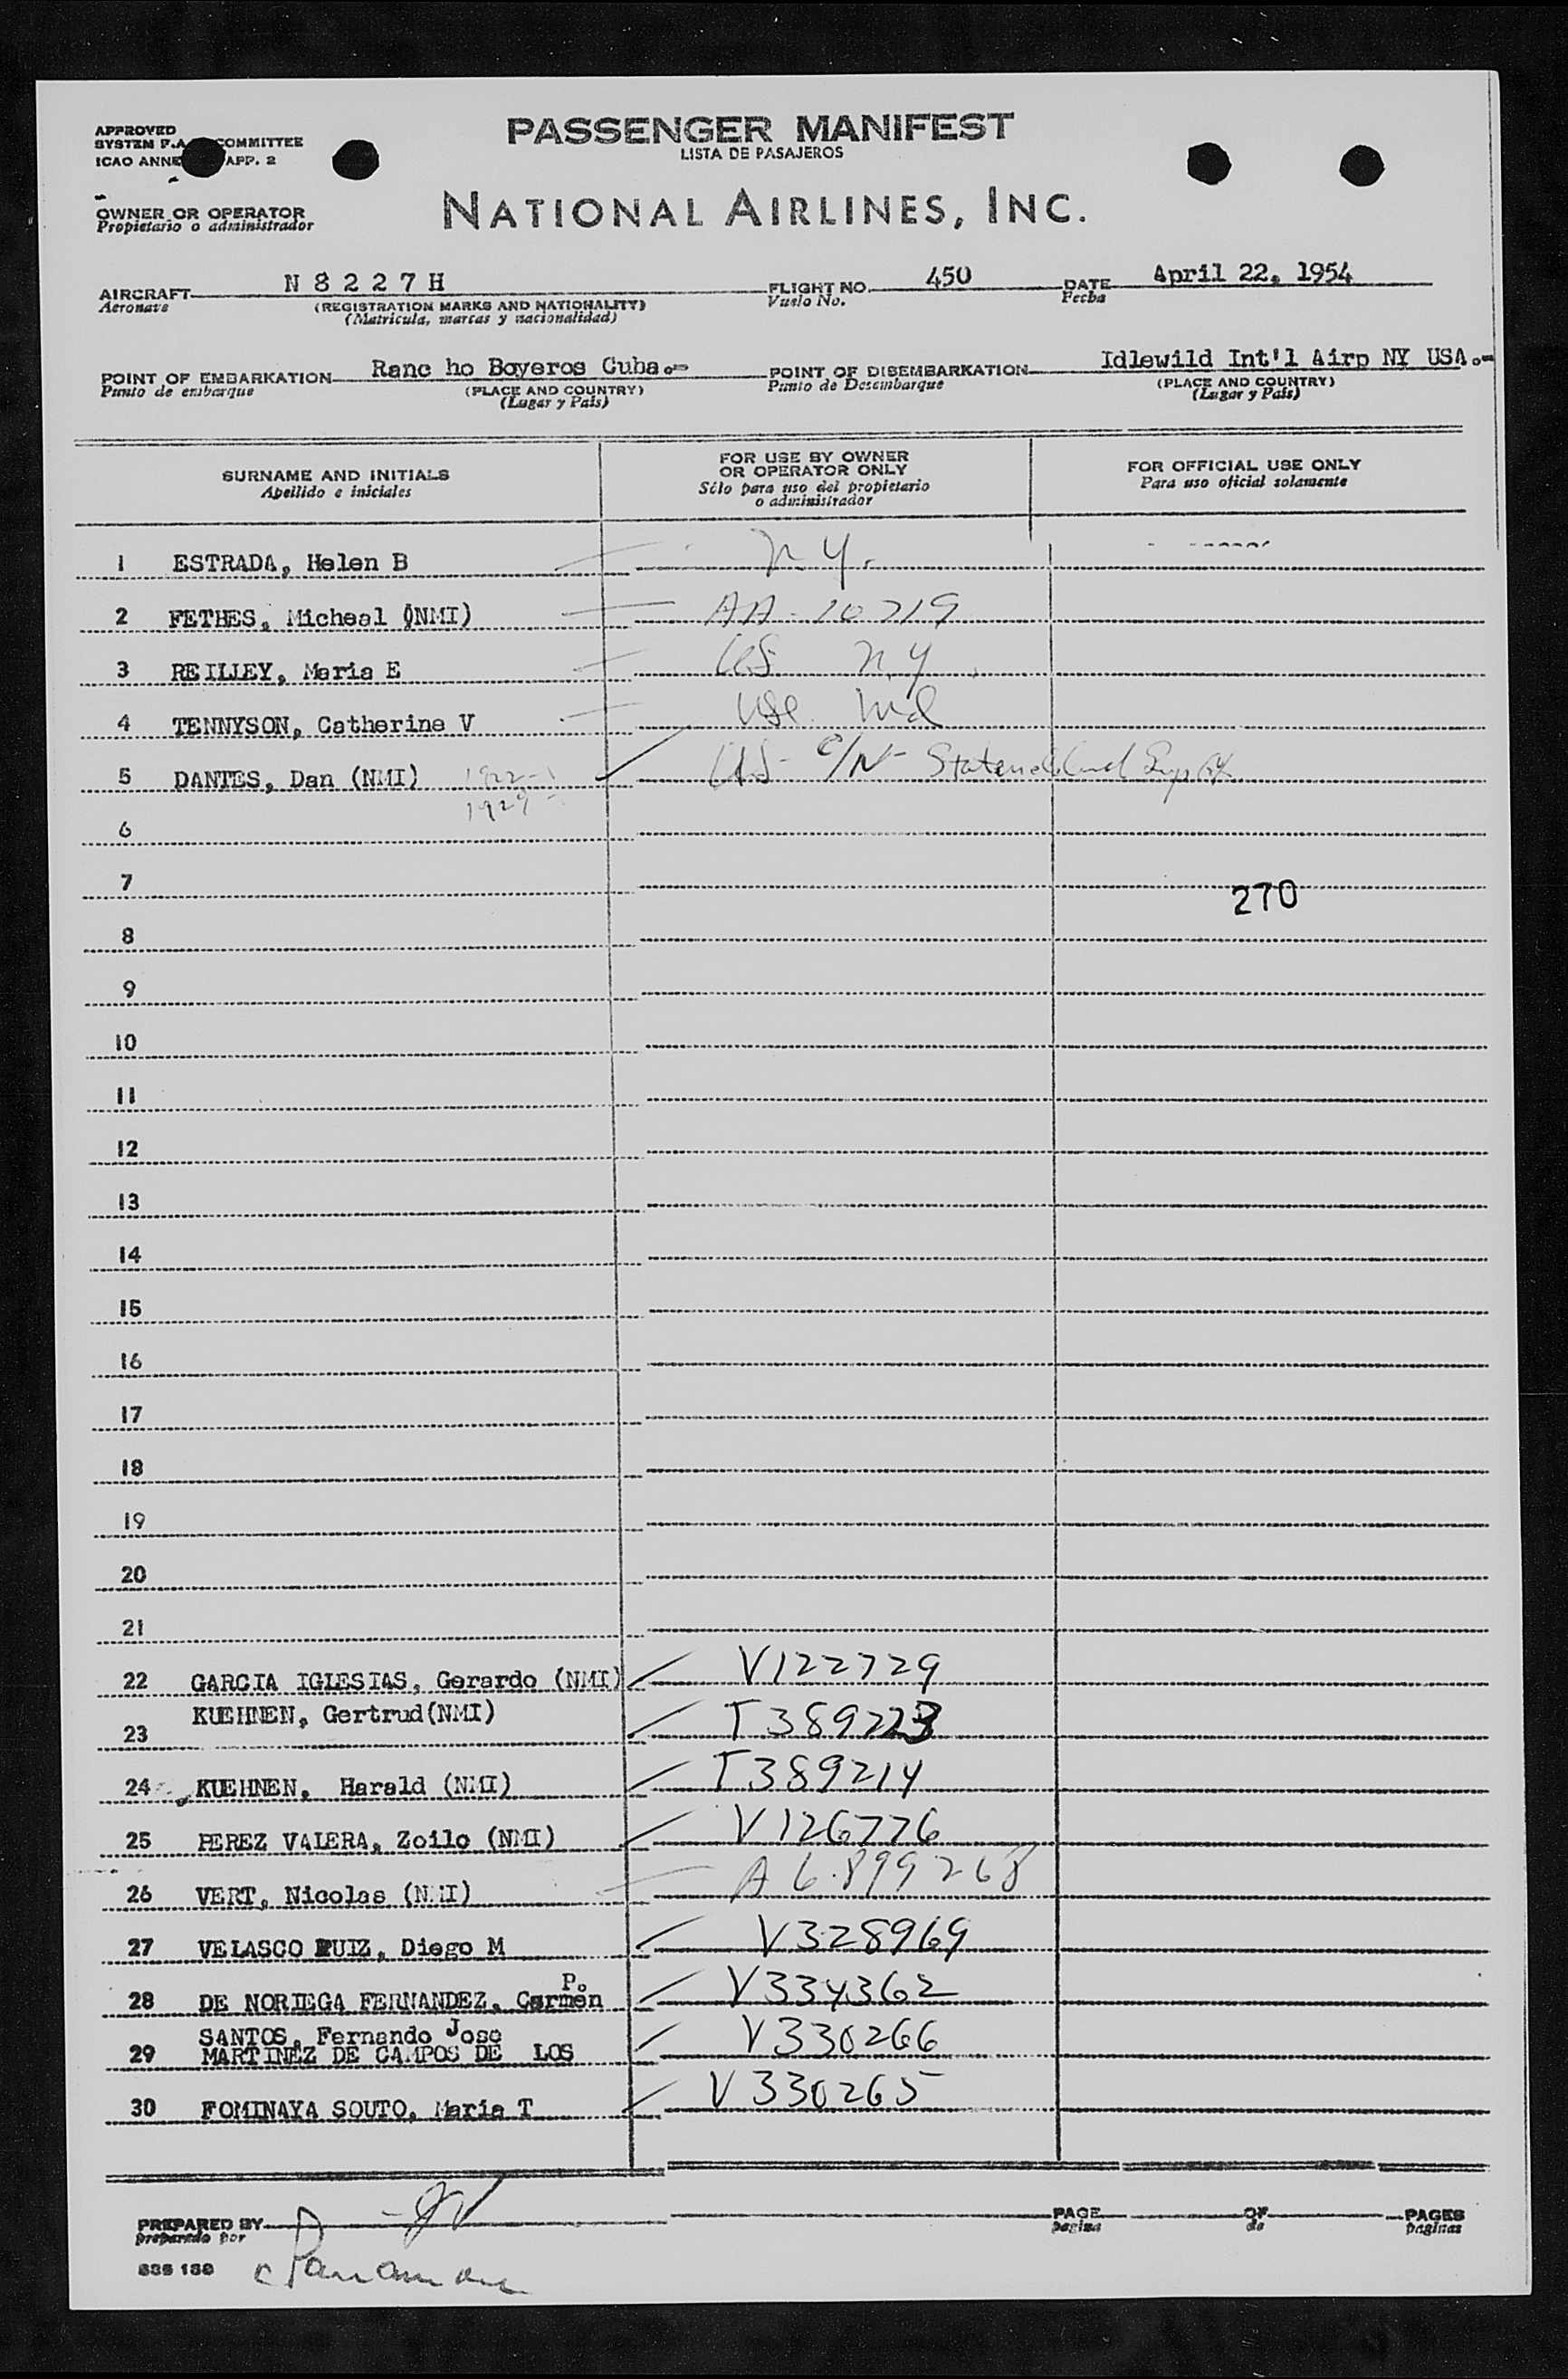 APPROVED
SYSTEM F.A. COMMITTEE
ICAO ANNE APP. 2
PASSENGER MANIFEST
LISTA DE PASAJEROS
OWNER OR OPERATOR
Propietario o administrador
NATIONAL AIRLINES, INC.
AIRCRAFT N 8 2 2 7 H FLIGHT NO. 450 DATE April 22, 1954
Aeronave (REGISTRATION MARKS AND NATIONALITY) Vuelo No. Fecha
(Matricula, marcas y nacionalidad)
POINT OF EMBARKATION Ranc ho Boyeros Cuba.- POINT OF DISEMBARKATION Idlewild Int'l Airp NY USA.-
Punto de embarque (PLACE AND COUNTRY) Punto de Desembarque (PLACE AND COUNTRY)
(Lugar y País) (Lugar y País)
SURNAME AND INITIALS
Apellido e iniciales
FOR USE BY OWNER
OR OPERATOR ONLY
Sólo para uso del propietario
o administrador
FOR OFFICIAL USE ONLY
Para uso oficial solamente
1 ESTRADA, Helen B NY.
2 FETHES, Micheal (NMI) AA-10719
3 REILLEY, Maria E US NY
4 TENNYSON, Catherine V USC Md
5 DANTES, Dan (NMI) 1922- US- C/N- Staten Island
1929-
6
7
270
8
9
10
11
12
13
14
15
16
17
18
19
20
21
22 GARCIA IGLESIAS, Gerardo (NMI) V122729
23 KUEHNEN, Gertrud(NMI) T389223
24 KUEHNEN, Harald (NMI) T389214
25 PEREZ VALERA, Zoilo (NMI) V126776
26 VERT, Nicolas (NMI) A 6.899268
27 VELASCO RUIZ, Diego M V328969
28 DE NORIEGA FERNANDEZ, Carmen P. V334362
SANTOS, Fernando Jose
29 MARTINEZ DE CAMPOS DE LOS V330266
30 FOMINAYA SOUTO, Maria T V330265
PREPARED BY PAGE OF PAGES
preparado por pagina de paginas